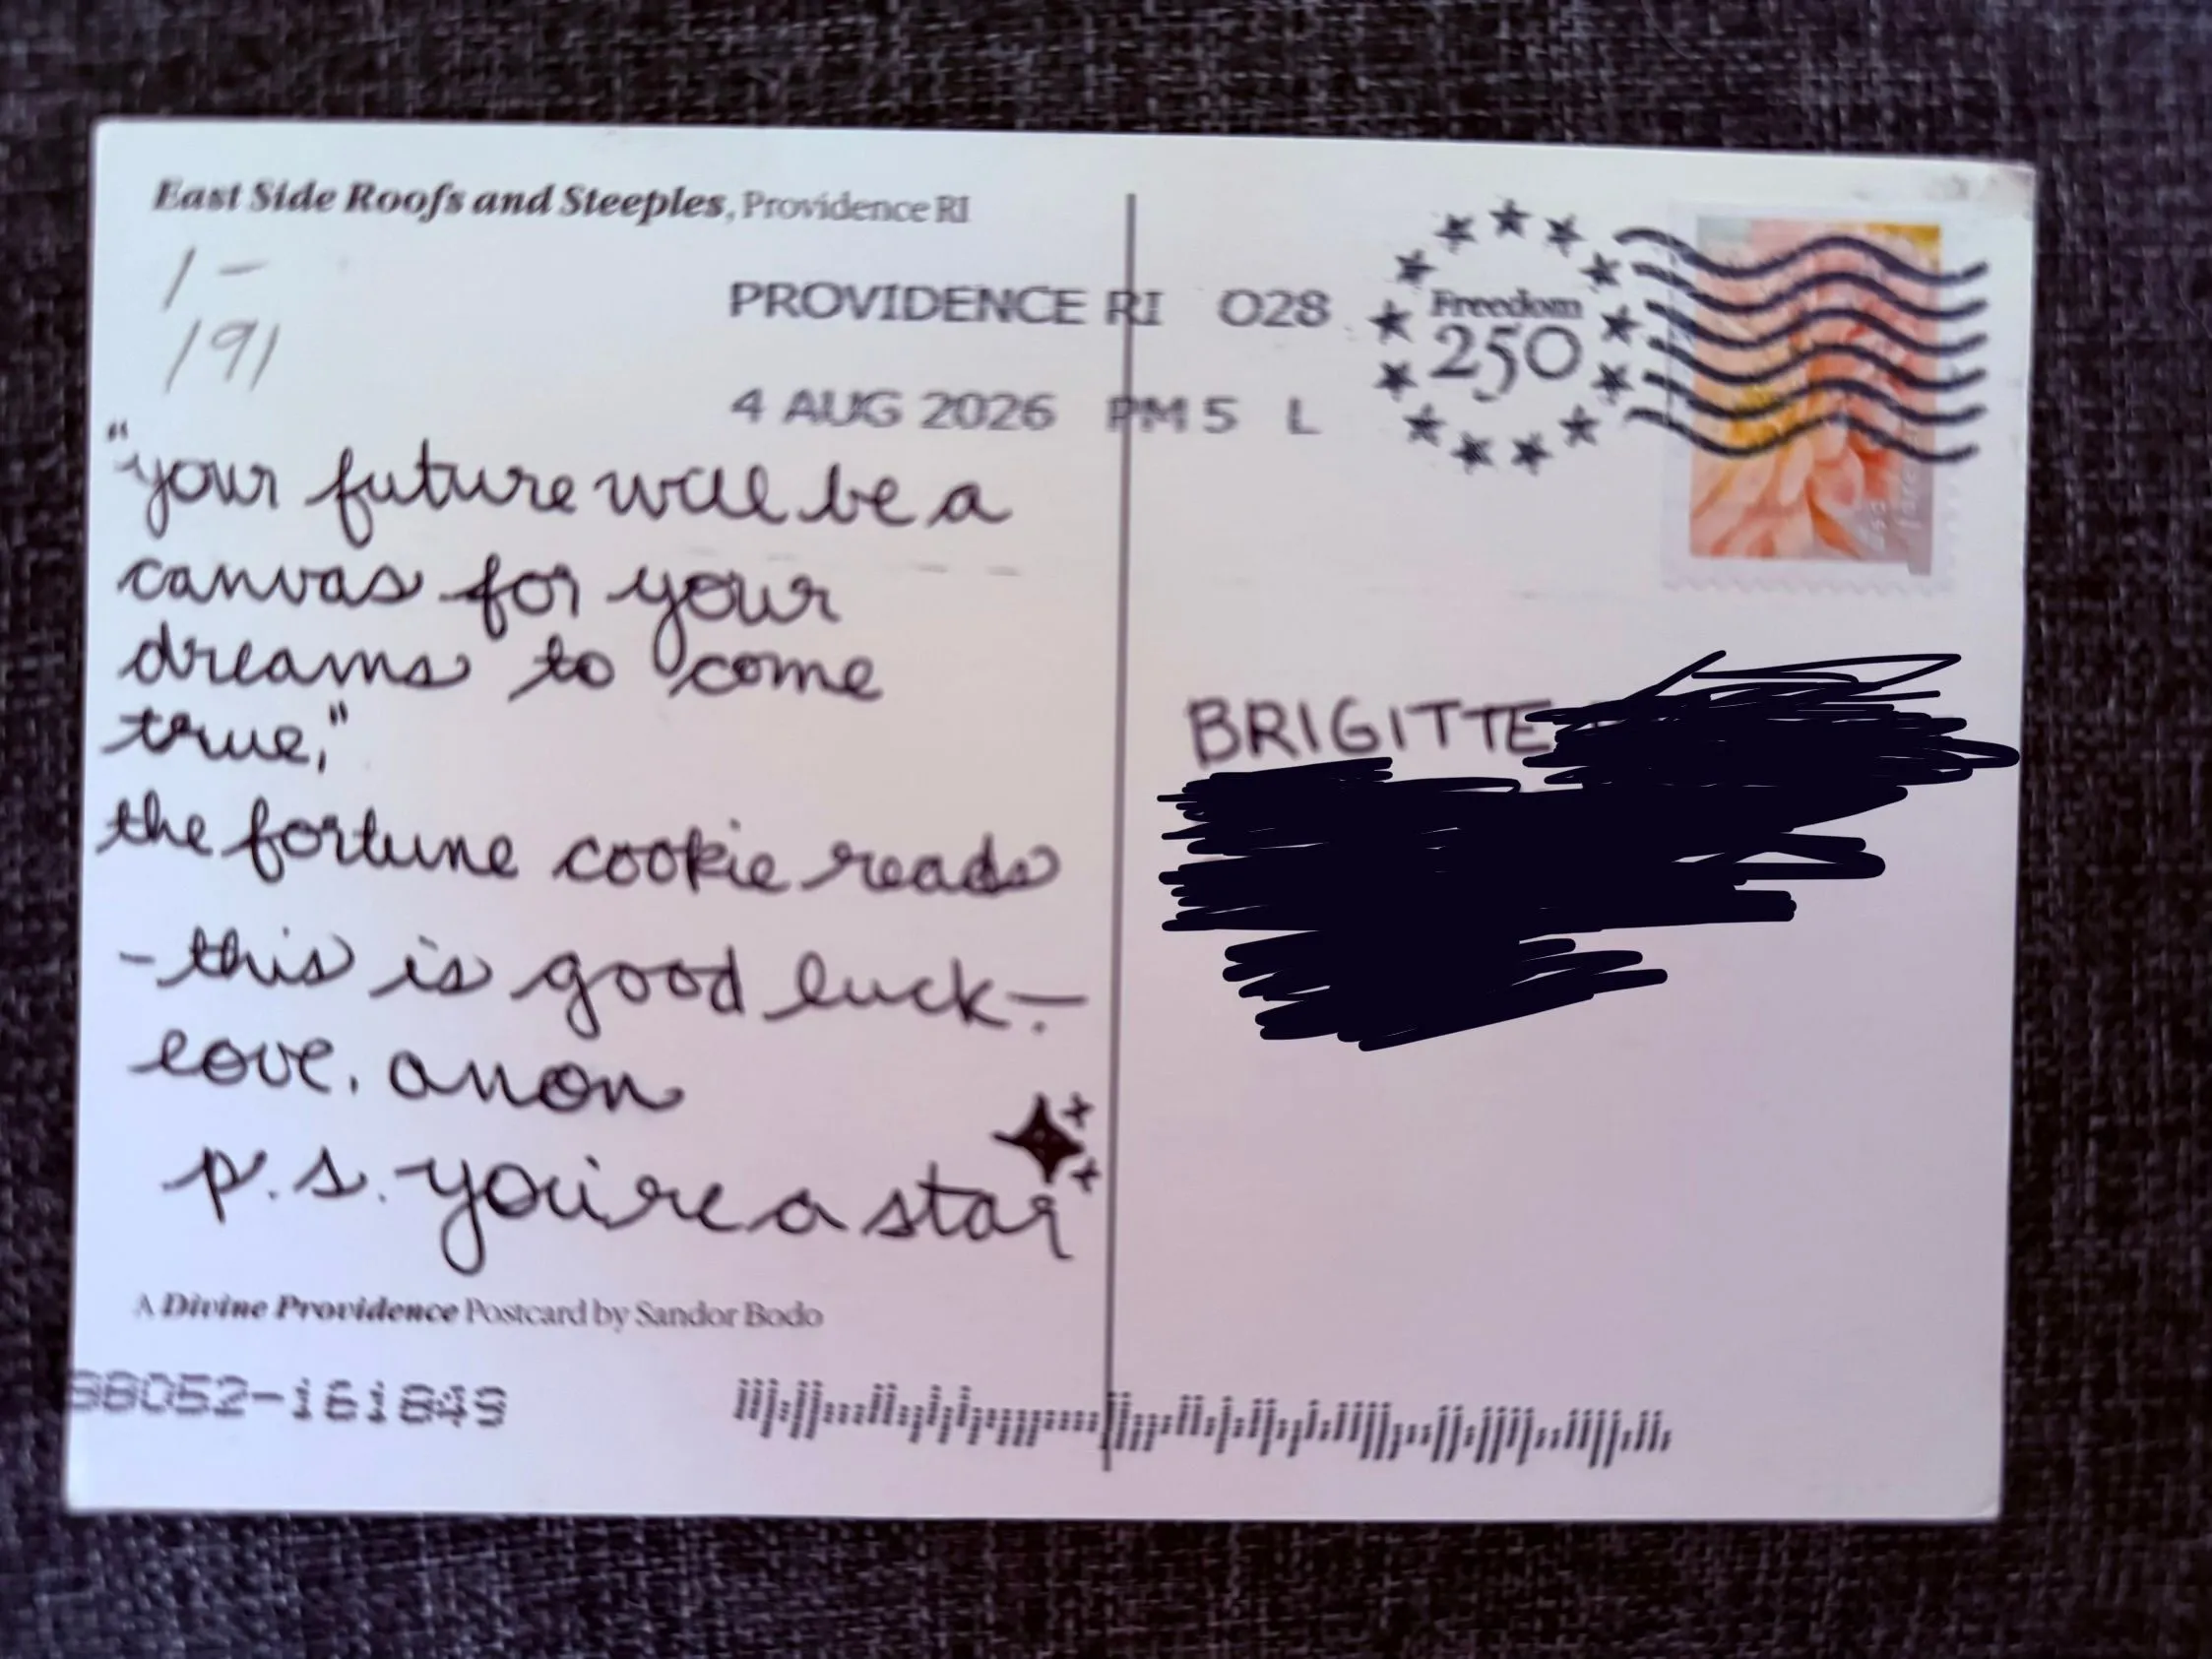 East Side Roofs and Steeples, Providence RI
1 -
191
PROVIDENCE RI 028
4 AUG 2026 PM 5 L
Freedom
250
"your future will be a
canvas for your
dreams to come
true,"
the fortune cookie reads
- this is good luck. -
love, anon
p.s. you're a star
BRIGITTE
A Divine Providence Postcard by Sandor Bodo
98052-161849